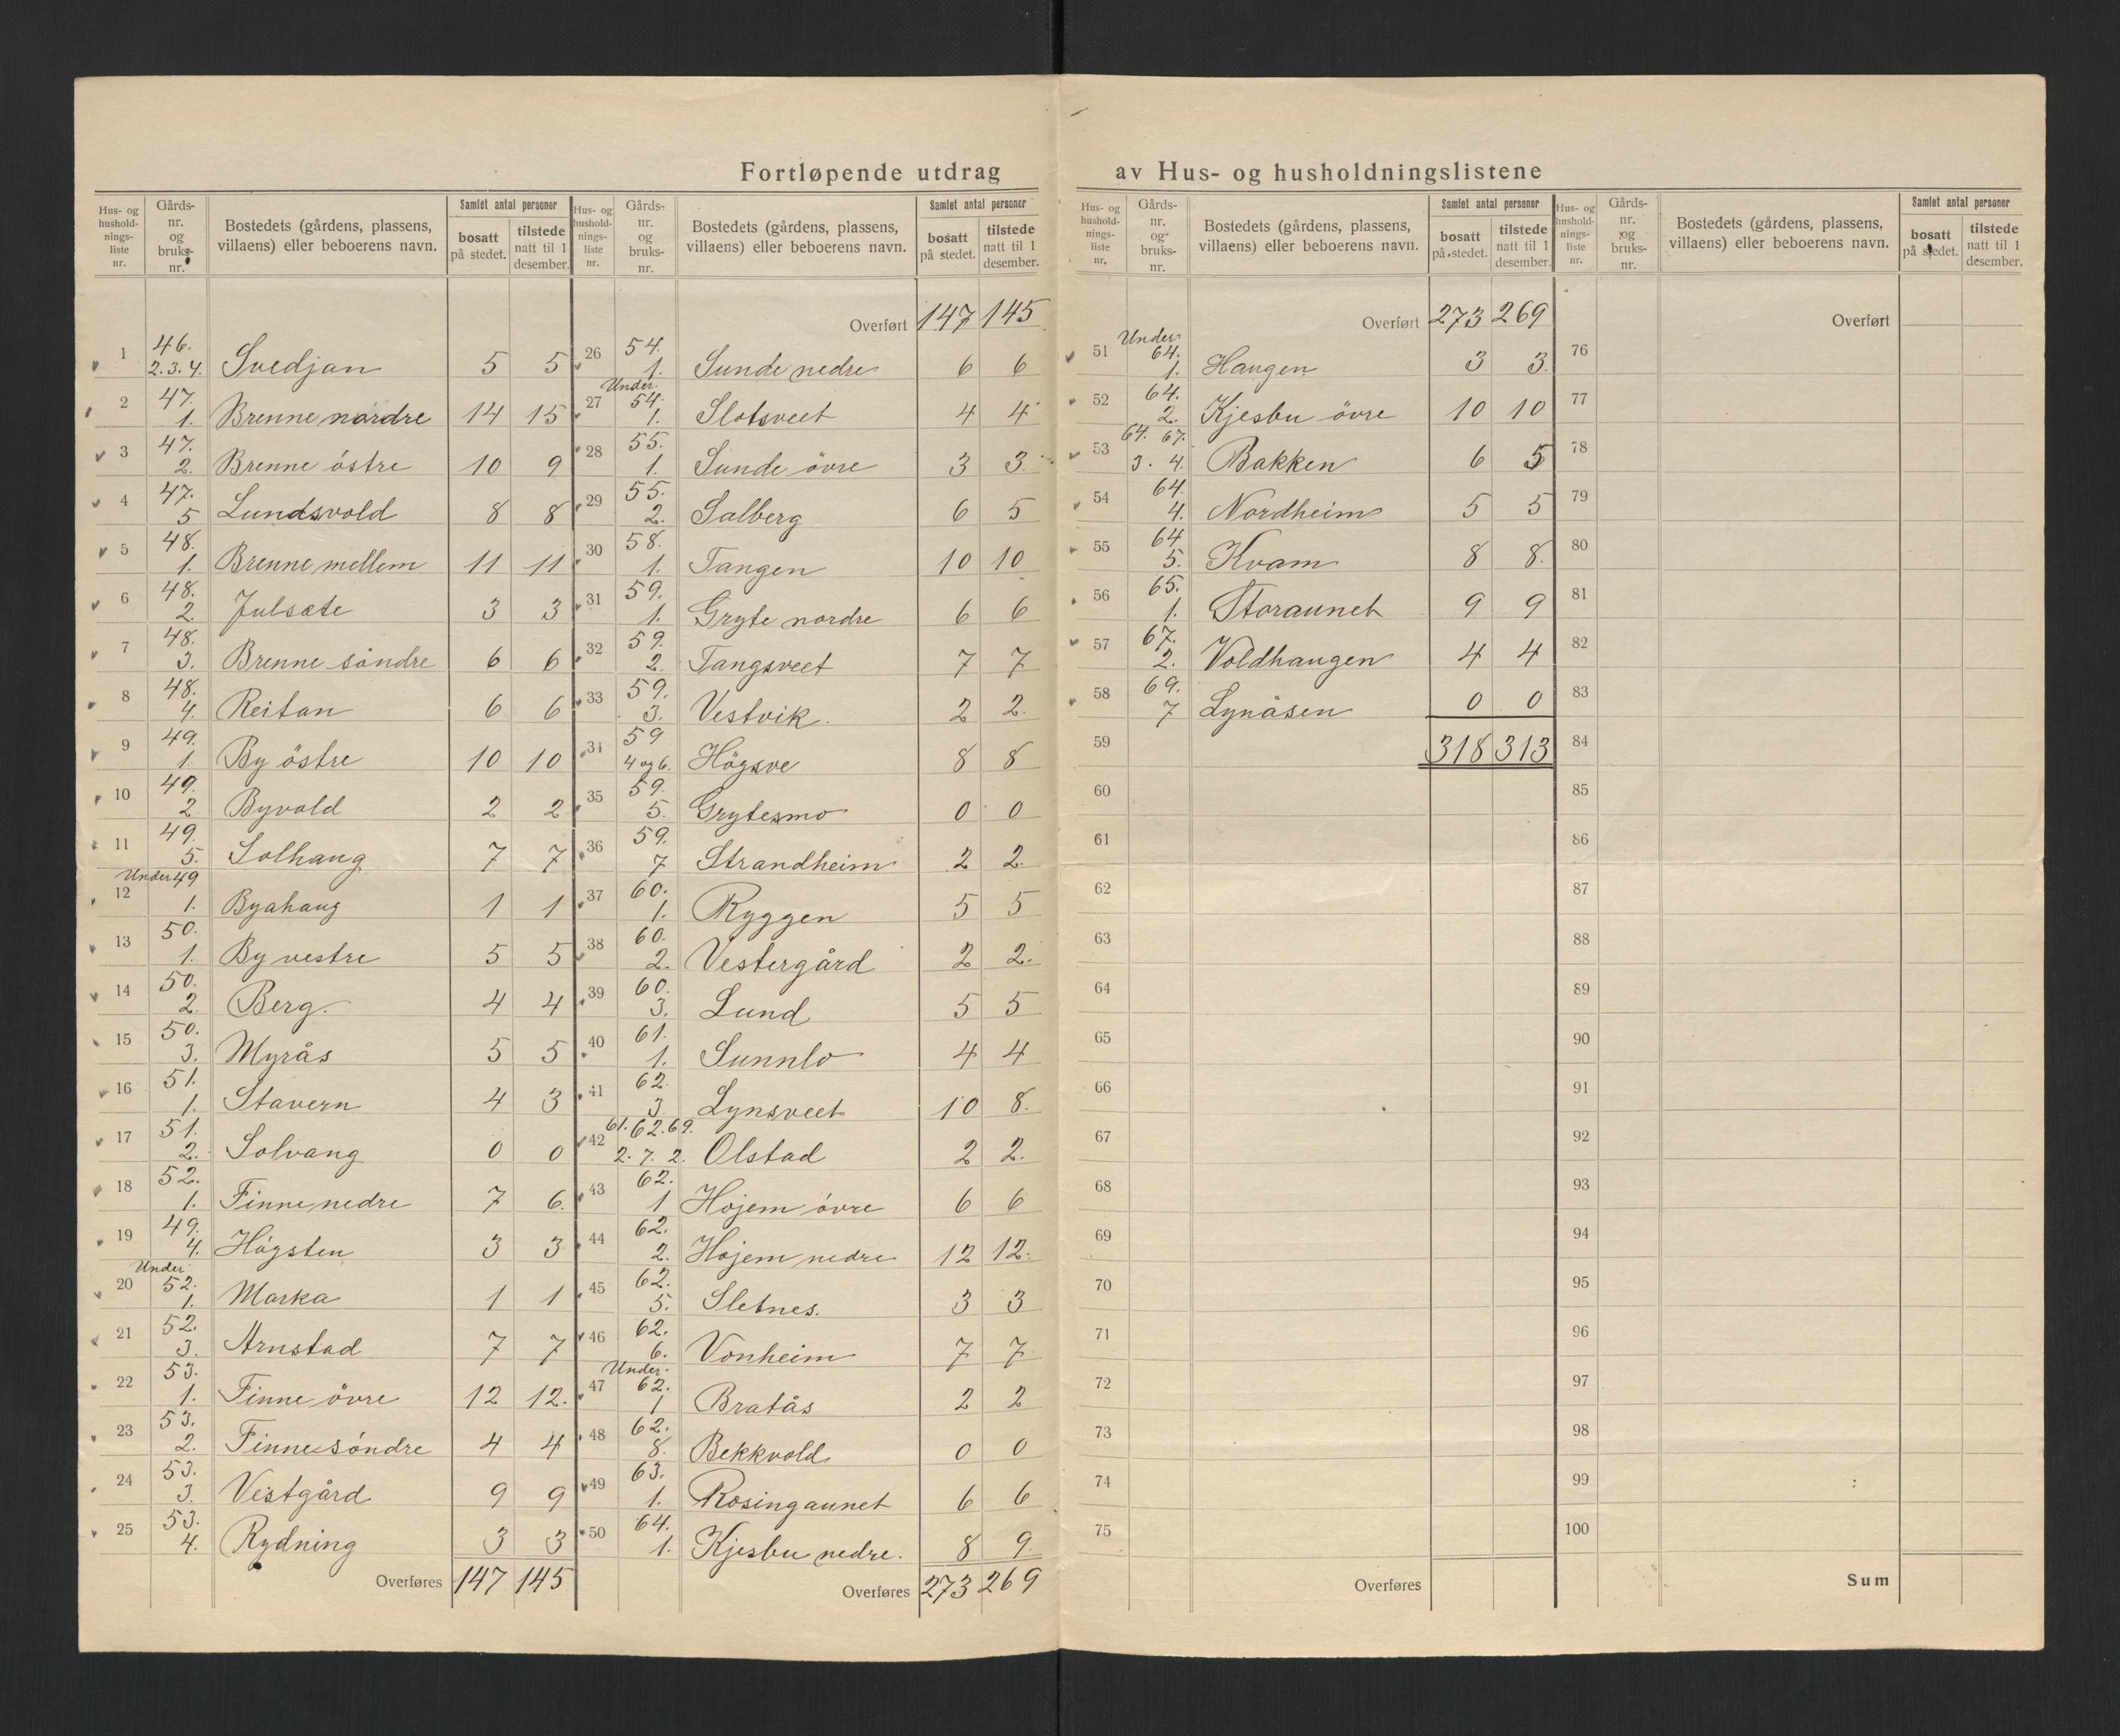 Fortløpende utdrag av Hus- og husholdningslistene
Hus- og hushold-nings-liste nr. | Gårds-nr. og bruks-nr. | Bostedets (gårdens, plassens, villaens) eller beboerens navn. | Samlet antal personer | bosatt på stedet. | tilstede natt til 1 desember.
1 46. 2.3.4. Svedjan 5 5
2 47. 1. Brenne nordre 14 15
3 47. 2. Brenne östre 10 9
4 47. 5 Lundsvold 8 8
5 48. 1. Brenne mellem 11 11
6 48. 2. Julsæte 3 3
7 48. 3. Brenne söndre 6 6
8 48. 4. Reitan 6 6
9 49. 1. By östre 10 10
10 49. 2. Byvold 2 2
11 49. 5. Solhaug 7 7
12 Under 49 1. Byahaug 1 1
13 50. 1. By vestre 5 5
14 50. 2. Berg. 4 4
15 50. 3. Myrås 5 5
16 51. 1. Stavern 4 3
17 51. 2. Solvang 0 0
18 52. 1. Finne nedre 7 6.
19 49. 4. Högsten 3 3
20 Under 52. 1. Marka 1 1
21 52. 3. Arnstad 7 7
22 53. 1. Finne övre 12 12.
23 53. 2. Finne söndre 4 4
24 53. 3. Vestgård 9 9
25 53. 4. Rydning 3 3
Overføres 147 145
Hus- og hushold-nings-liste nr. | Gårds-nr. og bruks-nr. | Bostedets (gårdens, plassens, villaens) eller beboerens navn. | Samlet antal personer | bosatt på stedet. | tilstede natt til 1 desember.
Overført 147 145
26 54. 1. Sunde nedre 6 6
27 Under 54. 1. Slotsveet 4 4
28 55. 1. Sunde övre 3 3.
29 55. 2. Salberg 6 5
30 58. 1. Tangen 10 10
31 59. 1. Gryte nordre 6 6
32 59. 2. Tangsveet 7 7
33 59. 3. Vestvik. 2 2.
34 59 4 og 6. Högsve 8 8
35 59. 5. Grytesmo 0 0
36 59. 7 Strandheim 2 2.
37 60. 1. Ryggen 5 5
38 60. 2. Vestergård 2 2.
39 60. 3. Lund 5 5
40 61. 1. Sunnlo 4 4
41 62. 3. Lynsveet 10 8.
42 61. 62. 69. 2. 7. 2. Olstad 2 2.
43 62. 1 Hojem övre 6 6
44 62. 2. Hojem nedre 12 12.
45 62. 5. Sletnes. 3 3
46 62. 6. Vonheim 7 7
47 Under 62. 1 Bratås 2 2
48 62. 8. Bekkvold 0 0
49 63. 1. Rosingaunet 6 6
50 64. 1. Kjesbu nedre. 8 9.
Overføres 273 269
Hus- og hushold-nings-liste nr. | Gårds-nr. og bruks-nr. | Bostedets (gårdens, plassens, villaens) eller beboerens navn. | Samlet antal personer | bosatt på stedet. | tilstede natt til 1 desember.
Overført 273 269
51 Under 64. 1. Haugen 3 3.
52 64. 2. Kjesbu övre 10 10
53 64. 67. 3. 4. Bakken 6 5
54 64. 4. Nordheim 5 5
55 64 5. Kvam 8 8.
56 65. 1. Storaunet 9 9
57 67. 2. Voldhaugen 4 4
58 69. 7 Lynåsen 0 0
59 318 313
60
61
62
63
64
65
66
67
68
69
70
71
72
73
74
75
Overføres
Hus- og hushold-nings-liste nr. | Gårds-nr. og bruks-nr. | Bostedets (gårdens, plassens, villaens) eller beboerens navn. | Samlet antal personer | bosatt på stedet. | tilstede natt til 1 desember.
Overført
76
77
78
79
80
81
82
83
84
85
86
87
88
89
90
91
92
93
94
95
96
97
98
99
100
Sum